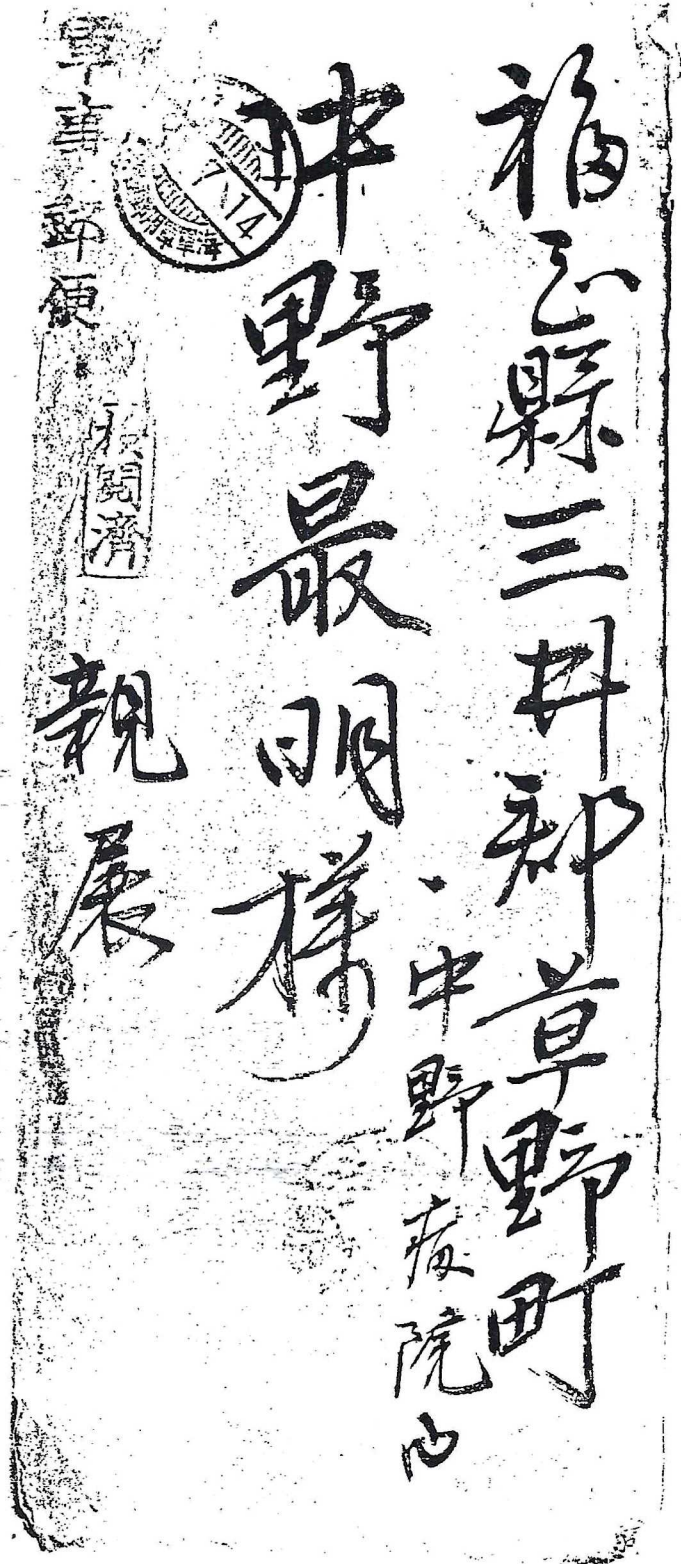 福岡縣三井郡草野町
中野病院内
中野最明様
親展
軍事郵便
検閲濟
7 14